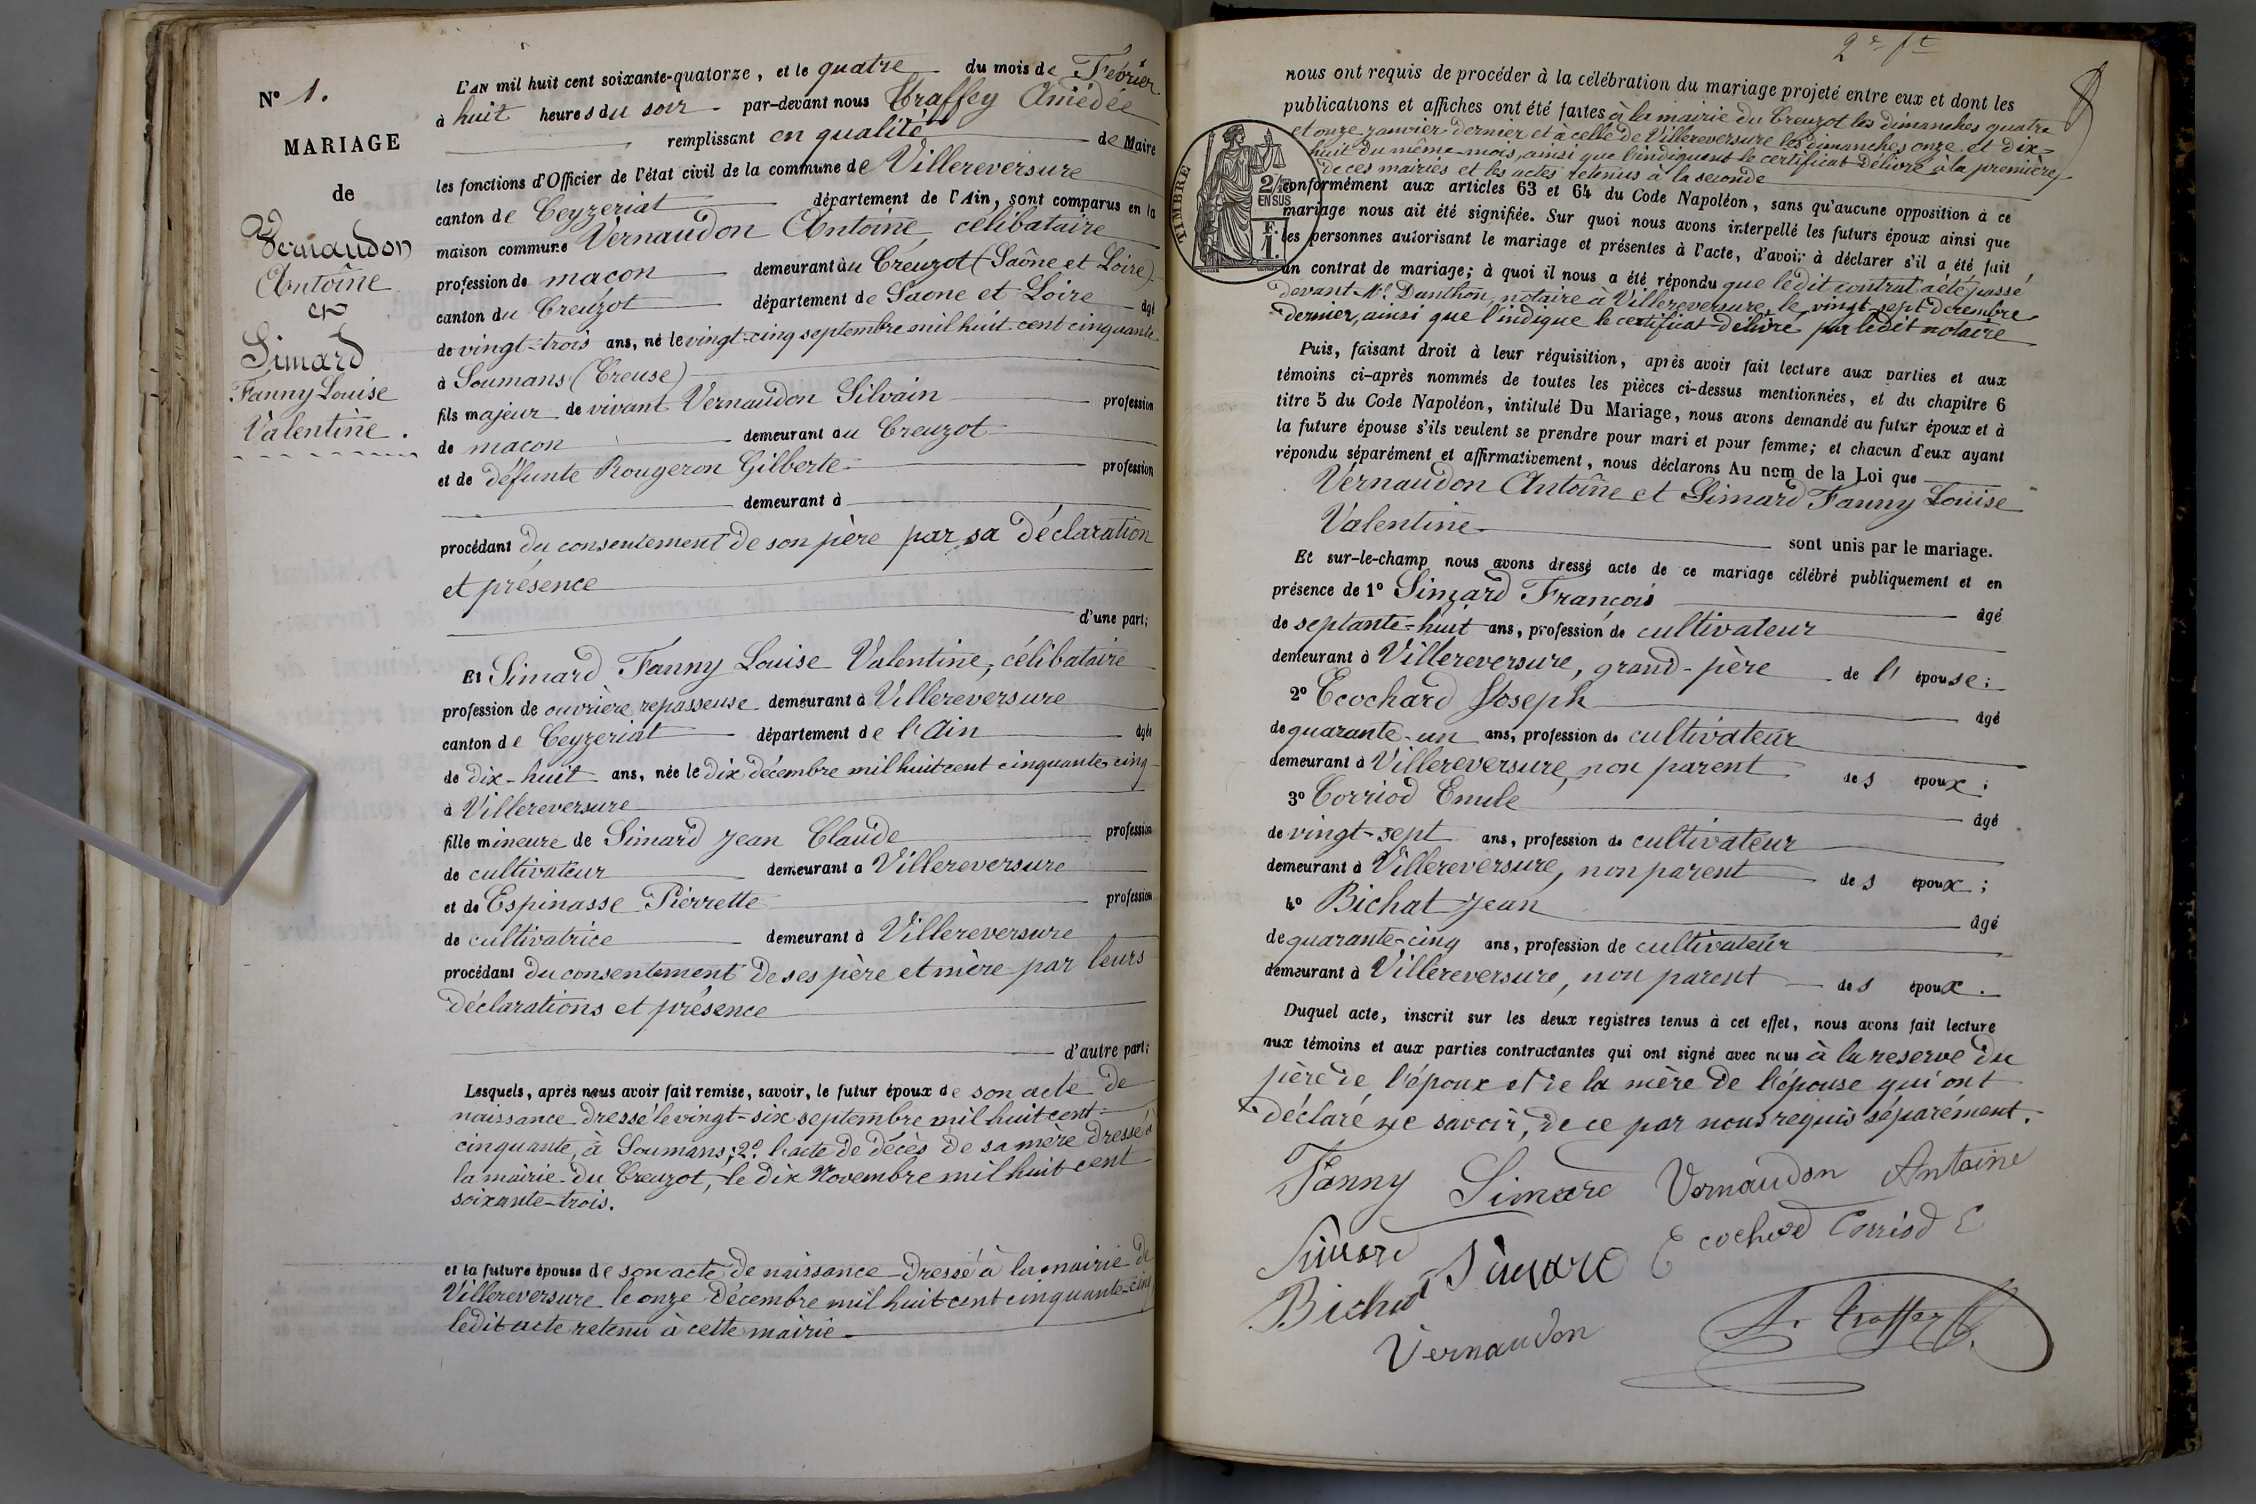 N° 1.
MARIAGE
de
Vernaudon
Antoine
et
Simard
Fanny Louise
Valentine.
L'AN mil huit cent soixante-quatorze, et le quatre du mois de Février
à huit heures du soir par-devant nous Traffey Amédée
remplissant en qualité de Maire
les fonctions d'Officier de l'état civil de la commune de Villereversure
canton de Ceyzeriat département de l'Ain, sont comparus en la
maison commune Vernaudon Antoine, célibataire
profession de macon demeurant au Creuzot (Saône et Loire)
canton du Creuzot département de Saone et Loire âgé
de vingt-trois ans, né le vingt-cinq septembre mil huit cent cinquante
à Soumans (Creuse)
fils majeur de vivant Vernaudon Silvain profession
de macon demeurant au Creuzot
et de défunte Rougeron Gilberte profession
demeurant à
procédant du consentement de son père par sa déclaration
et présence
d'une part;
Et Simard Fanny Louise Valentine, célibataire
profession de ouvrière repasseuse demeurant à Villereversure
canton de Ceyzeriat département de l'Ain âgée
de dix-huit ans, née le dix décembre mil huit cent cinquante cinq
à Villereversure
fille mineure de Simard Jean Claude profession
de cultivateur demeurant a Villereversure
et de Espinasse Pierrette profession
de cultivatrice demeurant à Villereversure
procédant du consentement de ses père et mère par leurs
déclarations et présence
d'autre part;
Lesquels, après nous avoir fait remise, savoir, le futur époux de son acte de
naissance dressé le vingt-six septembre mil huit cent
cinquante, à Soumans; 2° l'acte de décès de sa mère dressé à
la mairie du Creuzot, le dix Novembre mil huit cent
soixante-trois.
et la future épouse de son acte de naissance dressé à la mairie de
Villereversure le onze Décembre mil huit cent cinquante-cinq
ledit acte retenu à cette mairie
2e ft
nous ont requis de procéder à la célébration du mariage projeté entre eux et dont les
publications et affiches ont été faites à la mairie du Creuzot les dimanches quatre
et onze janvier dernier et à celle de Villereversure les dimanches onze et dix-
huit du même mois, ainsi que l'indiquent le certificat délivré à la première
de ces mairies et les actes retenus à la seconde
TIMBRE
2/10 EN SUS
F. 1.
conformément aux articles 63 et 64 du Code Napoléon, sans qu'aucune opposition à ce
mariage nous ait été signifiée. Sur quoi nous avons interpellé les futurs époux ainsi que
les personnes autorisant le mariage et présentes à l'acte, d'avoir à déclarer s'il a été fait
un contrat de mariage; à quoi il nous a été répondu que ledit contrat a été passé
devant Me Danthon, notaire à Villereversure, le vingt-sept décembre
dernier, ainsi que l'indique le certificat délivré par ledit notaire
Puis, faisant droit à leur réquisition, après avoir fait lecture aux parties et aux
témoins ci-après nommés de toutes les pièces ci-dessus mentionnées, et du chapitre 6
titre 5 du Code Napoléon, intitulé Du Mariage, nous avons demandé au futur époux et à
la future épouse s'ils veulent se prendre pour mari et pour femme; et chacun d'eux ayant
répondu séparément et affirmativement, nous déclarons Au nom de la Loi que
Vernaudon Antoine et Simard Fanny Louise
Valentine
sont unis par le mariage.
Et sur-le-champ nous avons dressé acte de ce mariage célébré publiquement et en
présence de 1° Simard François âgé
de septante-huit ans, profession de cultivateur
demeurant à Villereversure, grand-père de l'épouse;
2° Ecochard Joseph âgé
de quarante-un ans, profession de cultivateur
demeurant à Villereversure, non parent des époux;
3° Corriod Emile âgé
de vingt-sept ans, profession de cultivateur
demeurant à Villereversure, non parent des époux;
4° Bichat Jean âgé
de quarante-cinq ans, profession de cultivateur
demeurant à Villereversure, non parent des époux.
Duquel acte, inscrit sur les deux registres tenus à cet effet, nous avons fait lecture
aux témoins et aux parties contractantes qui ont signé avec nous à la reserve du
père de l'époux et de la mère de l'épouse qui ont
déclaré ne savoir, de ce par nous requis séparément.
Fanny Simard Vernaudon Antoine
Simard Simard Ecochard Corriod E
Bichat
Vernaudon A. Traffey